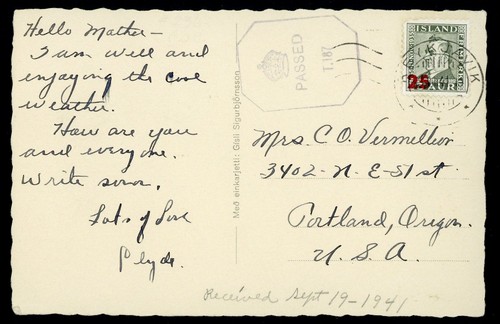 Hello Mother –
I am well and
enjoying the cool
weather.
How are you
and everyone.
Write soon.
Lots of Love
Clyde.
Með einkarjetti: Gísli Sigurbjörnsson.
PASSED
T.187
ÍSLAND
25
AUR
REYKJAVIK
Mrs. C. O. Vermillion
3402 - N. E - 51 st.
Portland, Oregon.
U. S. A.
Received Sept 19 - 1941